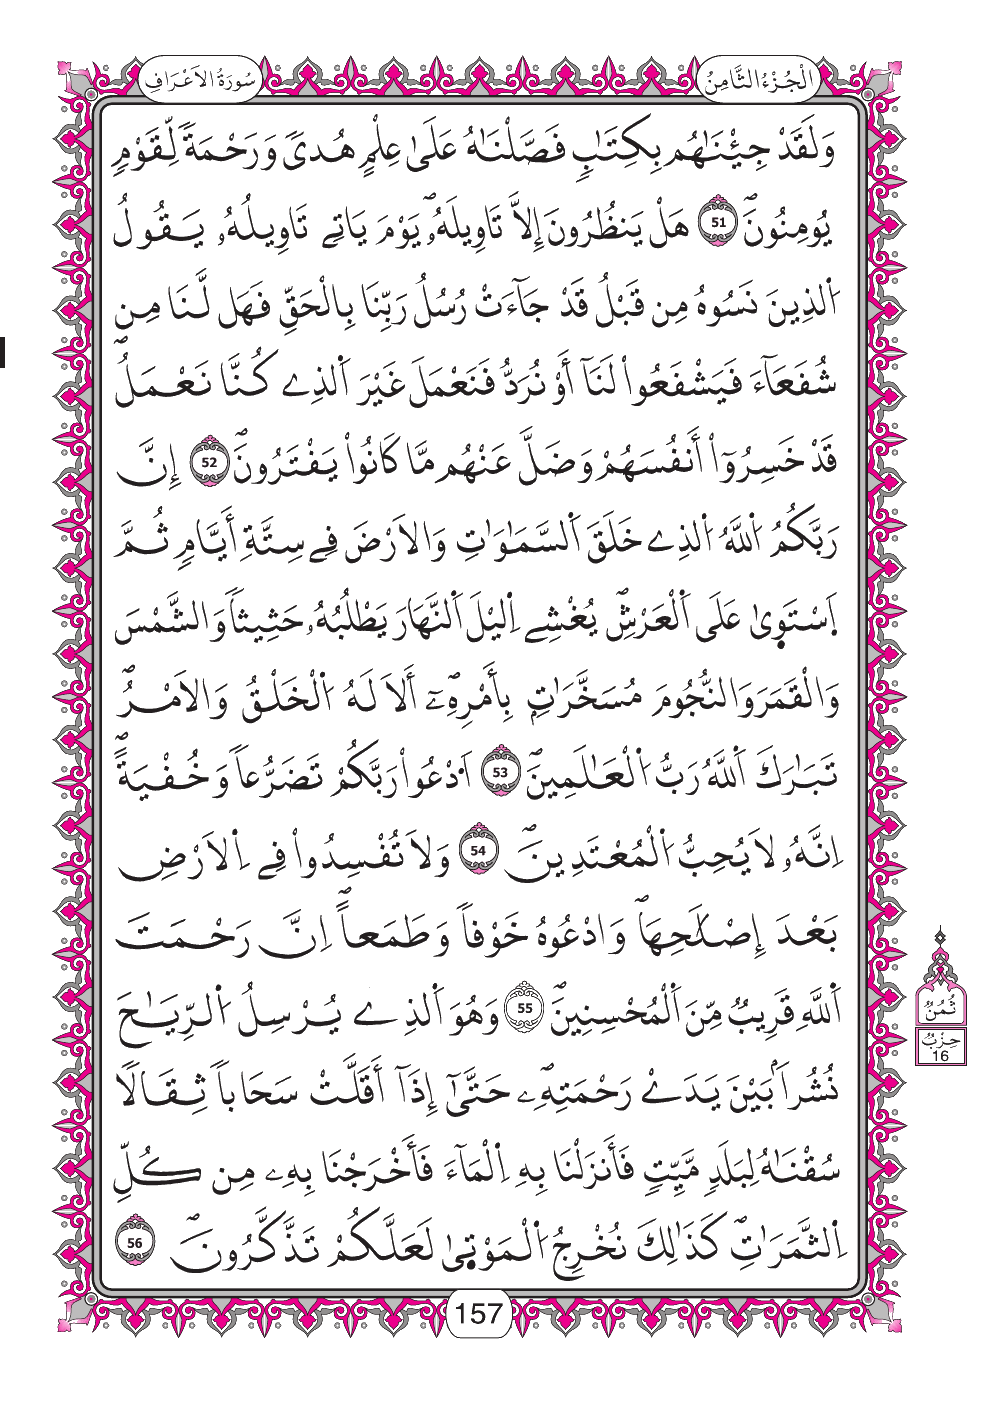 سُورَةُ الَاعْرَافِ
الْجُزْءُ الثَّامِنُ
وَلَقَدْ جِئْنَٰهُم بِكِتَٰبٍ فَصَّلْنَٰهُ عَلَىٰ عِلْمٍ هُدىً وَرَحْمَةً لِّقَوْمٍ
يُومِنُونَۖ 51 هَلْ يَنظُرُونَ إِلَّا تَاوِيلَهُۥۖ يَوْمَ يَاتِے تَاوِيلُهُۥ يَقُولُ
اُ۬لذِينَ نَسُوهُ مِن قَبْلُ قَدْ جَآءَتْ رُسُلُ رَبِّنَا بِالْحَقِّ فَهَل لَّنَا مِن
شُفَعَآءَ فَيَشْفَعُواْ لَنَآ أَوْ نُرَدُّ فَنَعْمَلَ غَيْرَ اَ۬لذِے كُنَّا نَعْمَلُۖ
قَدْ خَسِرُوٓاْ أَنفُسَهُمْ وَضَلَّ عَنْهُم مَّا كَانُواْ يَفْتَرُونَۖ 52 إِنَّ
رَبَّكُمُ اُ۬للَّهُ اُ۬لذِے خَلَقَ اَ۬لسَّمَٰوَٰتِ وَالَارْضَ فِے سِتَّةِ أَيَّامٍ ثُمَّ
اَ۪سْتَو۪ىٰ عَلَى اَ۬لْعَرْشِۖ يُغْشِے اِ۬ليْلَ اَ۬لنَّهَارَ يَطْلُبُهُۥ حَثِيثاً وَالشَّمْسَ
وَالْقَمَرَ وَالنُّجُومَ مُسَخَّرَٰتِۢ بِأَمْرِهِۦٓۖ أَلَا لَهُ اُ۬لْخَلْقُ وَالَامْرُۖ
تَبَٰرَكَ اَ۬للَّهُ رَبُّ اُ۬لْعَٰلَمِينَۖ 53 اَ۟دْعُواْ رَبَّكُمْ تَضَرُّعاً وَخُفْيَةًۖ
اِنَّهُۥ لَا يُحِبُّ اُ۬لْمُعْتَدِينَۖ 54 وَلَا تُفْسِدُواْ فِے اِ۬لَارْضِ
بَعْدَ إِصْلَٰحِهَاۖ وَادْعُوهُ خَوْفاً وَطَمَعاًۖ اِنَّ رَحْمَتَ
اَ۬للَّهِ قَرِيبٌ مِّنَ اَ۬لْمُحْسِنِينَۖ 55 وَهُوَ اَ۬لذِے يُرْسِلُ اُ۬لرِّيَٰحَ
نُشُراَۢ بَيْنَ يَدَےْ رَحْمَتِهِۦۖ حَتَّىٰٓ إِذَآ أَقَلَّتْ سَحَاباً ثِقَالًا
سُقْنَٰهُ لِبَلَدٍ مَّيِّتٍ فَأَنزَلْنَا بِهِ اِ۬لْمَآءَ فَأَخْرَجْنَا بِهِۦ مِن كُلِّ
اِ۬لثَّمَرَٰتِۖ كَذَٰلِكَ نُخْرِجُ اُ۬لْمَوْت۪ىٰ لَعَلَّكُمْ تَذَّكَّرُونَۖ 56
ثُمُنُ
حِزْبُ
16
157